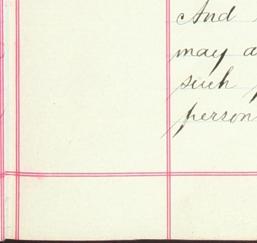 And
may a
such
person